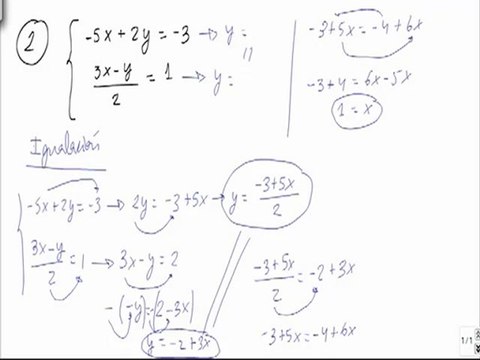 2
-5x+2y=-3 → y=
(3x-y)/2 = 1 → y=
Igualación
-5x+2y=-3 → 2y=-3+5x → y= (-3+5x)/2
(3x-y)/2 = 1 → 3x-y=2
-(-y)=(2-3x)
y=-2+3x
(-3+5x)/2 = -2+3x
-3+5x=-4+6x
-3+5x=-4+6x
-3+4=6x-5x
1=x
1/1